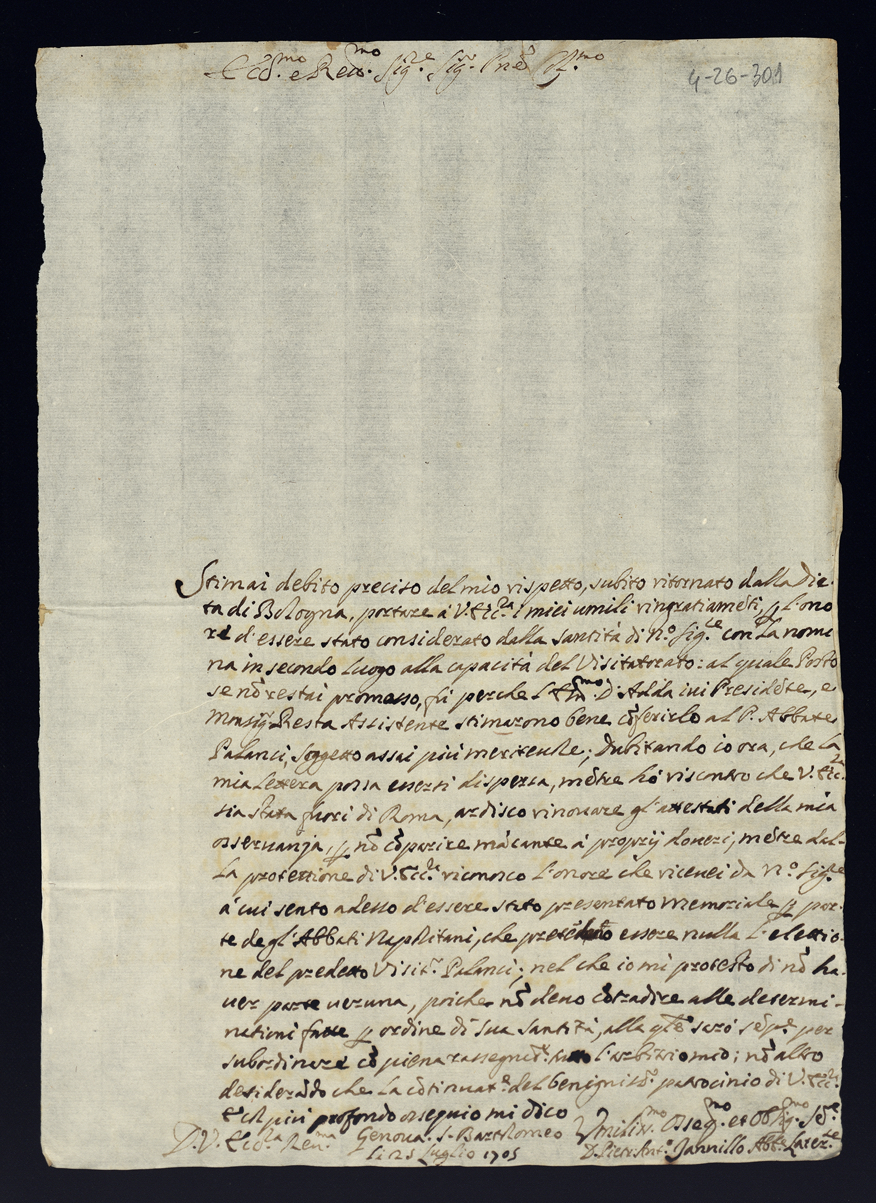 Ecc.mo e Rev.mo Sig.re Sig.r P.ne Col.mo
4-26-301
Stimai debito preciso del mio rispetto, subito ritornato dalla Die-
ta di Bologna, portare à V. Ecc.za i miei umili ringratiamēti, p l'ono
re d'essere stato considerato dalla santità di N.ro Sig.re con La nomi
na in secondo luogo alla capacità del Visitatorato: al quale Posto
se nō restai promosso, fù perche L'Em.mo D'Adda ivi Presidēte, e
Monsig.r Resta Assistente stimarono bene cōferirlo al P. Abbate
Palanci, soggetto assai più meritevole; Dubitando io ora, che La
mia Lettera possa essersi dispersa, mētre hò riscontro che V. Ecc.za
sia stata fuori di Roma, ardisco rinovare gl'attestati della mia
osservanza, p nō cōparire mācante à proprij doveri, mētre dal-
La protettione di V. Ecc.za riconosco L'onore che ricevei da N.ro Sig.re
à cui sento adesso d'essere stato presentato memoriale p par-
te degl'Abbati Napolitani, che essere nulla L'elettio-
ne del predetto Visit.r Palanci; nel che io mi protesto di nō ha-
ver parte veruna, poiche nō devo cōtradire alle determi-
nationi fatte p ordine di Sua Santità, alla q̄le sarò sēp.e per
subordinare cō piena rassegnat.e tutto l'arbitrio mio; nō altro
desiderādo che La cōtinuat.e del benigniss.o patrocinio di V. Ecc.za
e col più profondo ossequio mi dico
D. V. Ecc.za Rev.ma Genova S. Bartolomeo Umiliss.mo Osseq.mo et Oblig.mo S.re
li 25 Luglio 1705 D. Pietr'Ant.o Jannillo Abb.e